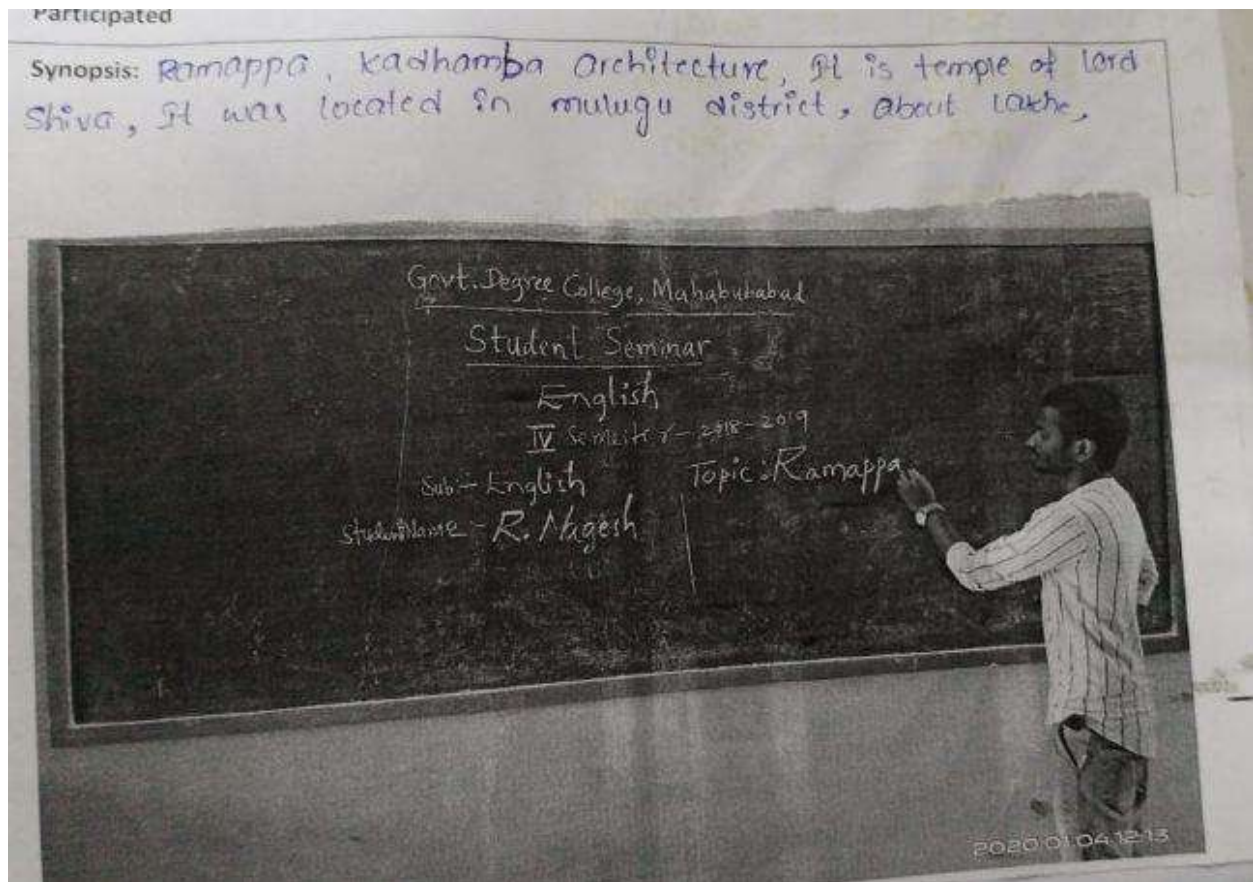 Participated
Synopsis: Ramappa, Kadhamba Architecture, It is temple of Lord
Shiva, It was located in mulugu district, about Lakhe,
Govt. Degree College, Mahabubabad
Student Seminar
English
IV Semester - 2018-2019
Sub:- English
Topic: Ramappa
Student Name - R. Nagesh
2020 01 04 12:13